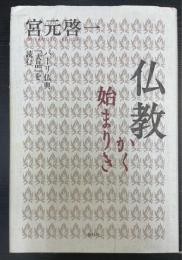 宮元啓一
仏教
かく
始まりき
パーリ仏典
『大品』を
読む
春秋社